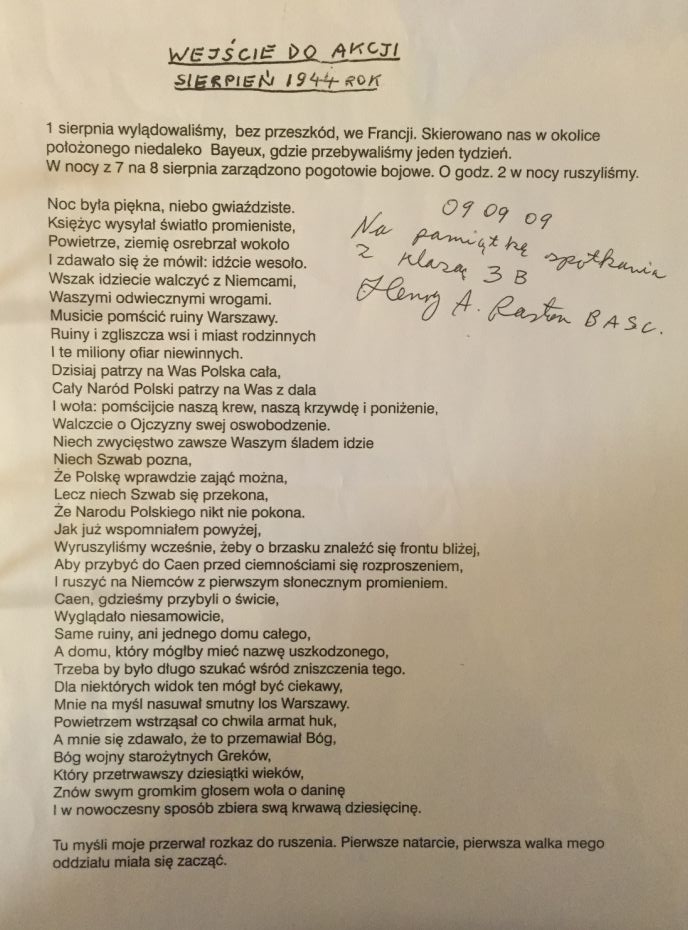 WEJŚCIE DO AKCJI
SIERPIEŃ 1944 ROK
1 sierpnia wylądowaliśmy, bez przeszkód, we Francji. Skierowano nas w okolice
położonego niedaleko Bayeux, gdzie przebywaliśmy jeden tydzień.
W nocy z 7 na 8 sierpnia zarządzono pogotowie bojowe. O godz. 2 w nocy ruszyliśmy.
Noc była piękna, niebo gwiaździste.
Księżyc wysyłał światło promieniste,
Powietrze, ziemię osrebrzał wokoło
I zdawało się że mówił: idźcie wesoło.
Wszak idziecie walczyć z Niemcami,
Waszymi odwiecznymi wrogami.
Musicie pomścić ruiny Warszawy.
Ruiny i zgliszcza wsi i miast rodzinnych
I te miliony ofiar niewinnych.
Dzisiaj patrzy na Was Polska cała,
Cały Naród Polski patrzy na Was z dala
I woła: pomścijcie naszą krew, naszą krzywdę i poniżenie,
Walczcie o Ojczyzny swej oswobodzenie.
Niech zwycięstwo zawsze Waszym śladem idzie
Niech Szwab pozna,
Że Polskę wprawdzie zająć można,
Lecz niech Szwab się przekona,
Że Narodu Polskiego nikt nie pokona.
Jak już wspomniałem powyżej,
Wyruszyliśmy wcześnie, żeby o brzasku znaleźć się frontu bliżej,
Aby przybyć do Caen przed ciemnościami się rozproszeniem,
I ruszyć na Niemców z pierwszym słonecznym promieniem.
Caen, gdzieśmy przybyli o świcie,
Wyglądało niesamowicie,
Same ruiny, ani jednego domu całego,
A domu, który mógłby mieć nazwę uszkodzonego,
Trzeba by było długo szukać wśród zniszczenia tego.
Dla niektórych widok ten mógł być ciekawy,
Mnie na myśl nasuwał smutny los Warszawy.
Powietrzem wstrząsał co chwila armat huk,
A mnie się zdawało, że to przemawiał Bóg,
Bóg wojny starożytnych Greków,
Który przetrwawszy dziesiątki wieków,
Znów swym gromkim głosem woła o daninę
I w nowoczesny sposób zbiera swą krwawą dziesięcinę.
Tu myśli moje przerwał rozkaz do ruszenia. Pierwsze natarcie, pierwsza walka mego
oddziału miała się zacząć.
09 09 09
Na pamiątkę spotkania
z klasą 3 B
Henry A. BASc.